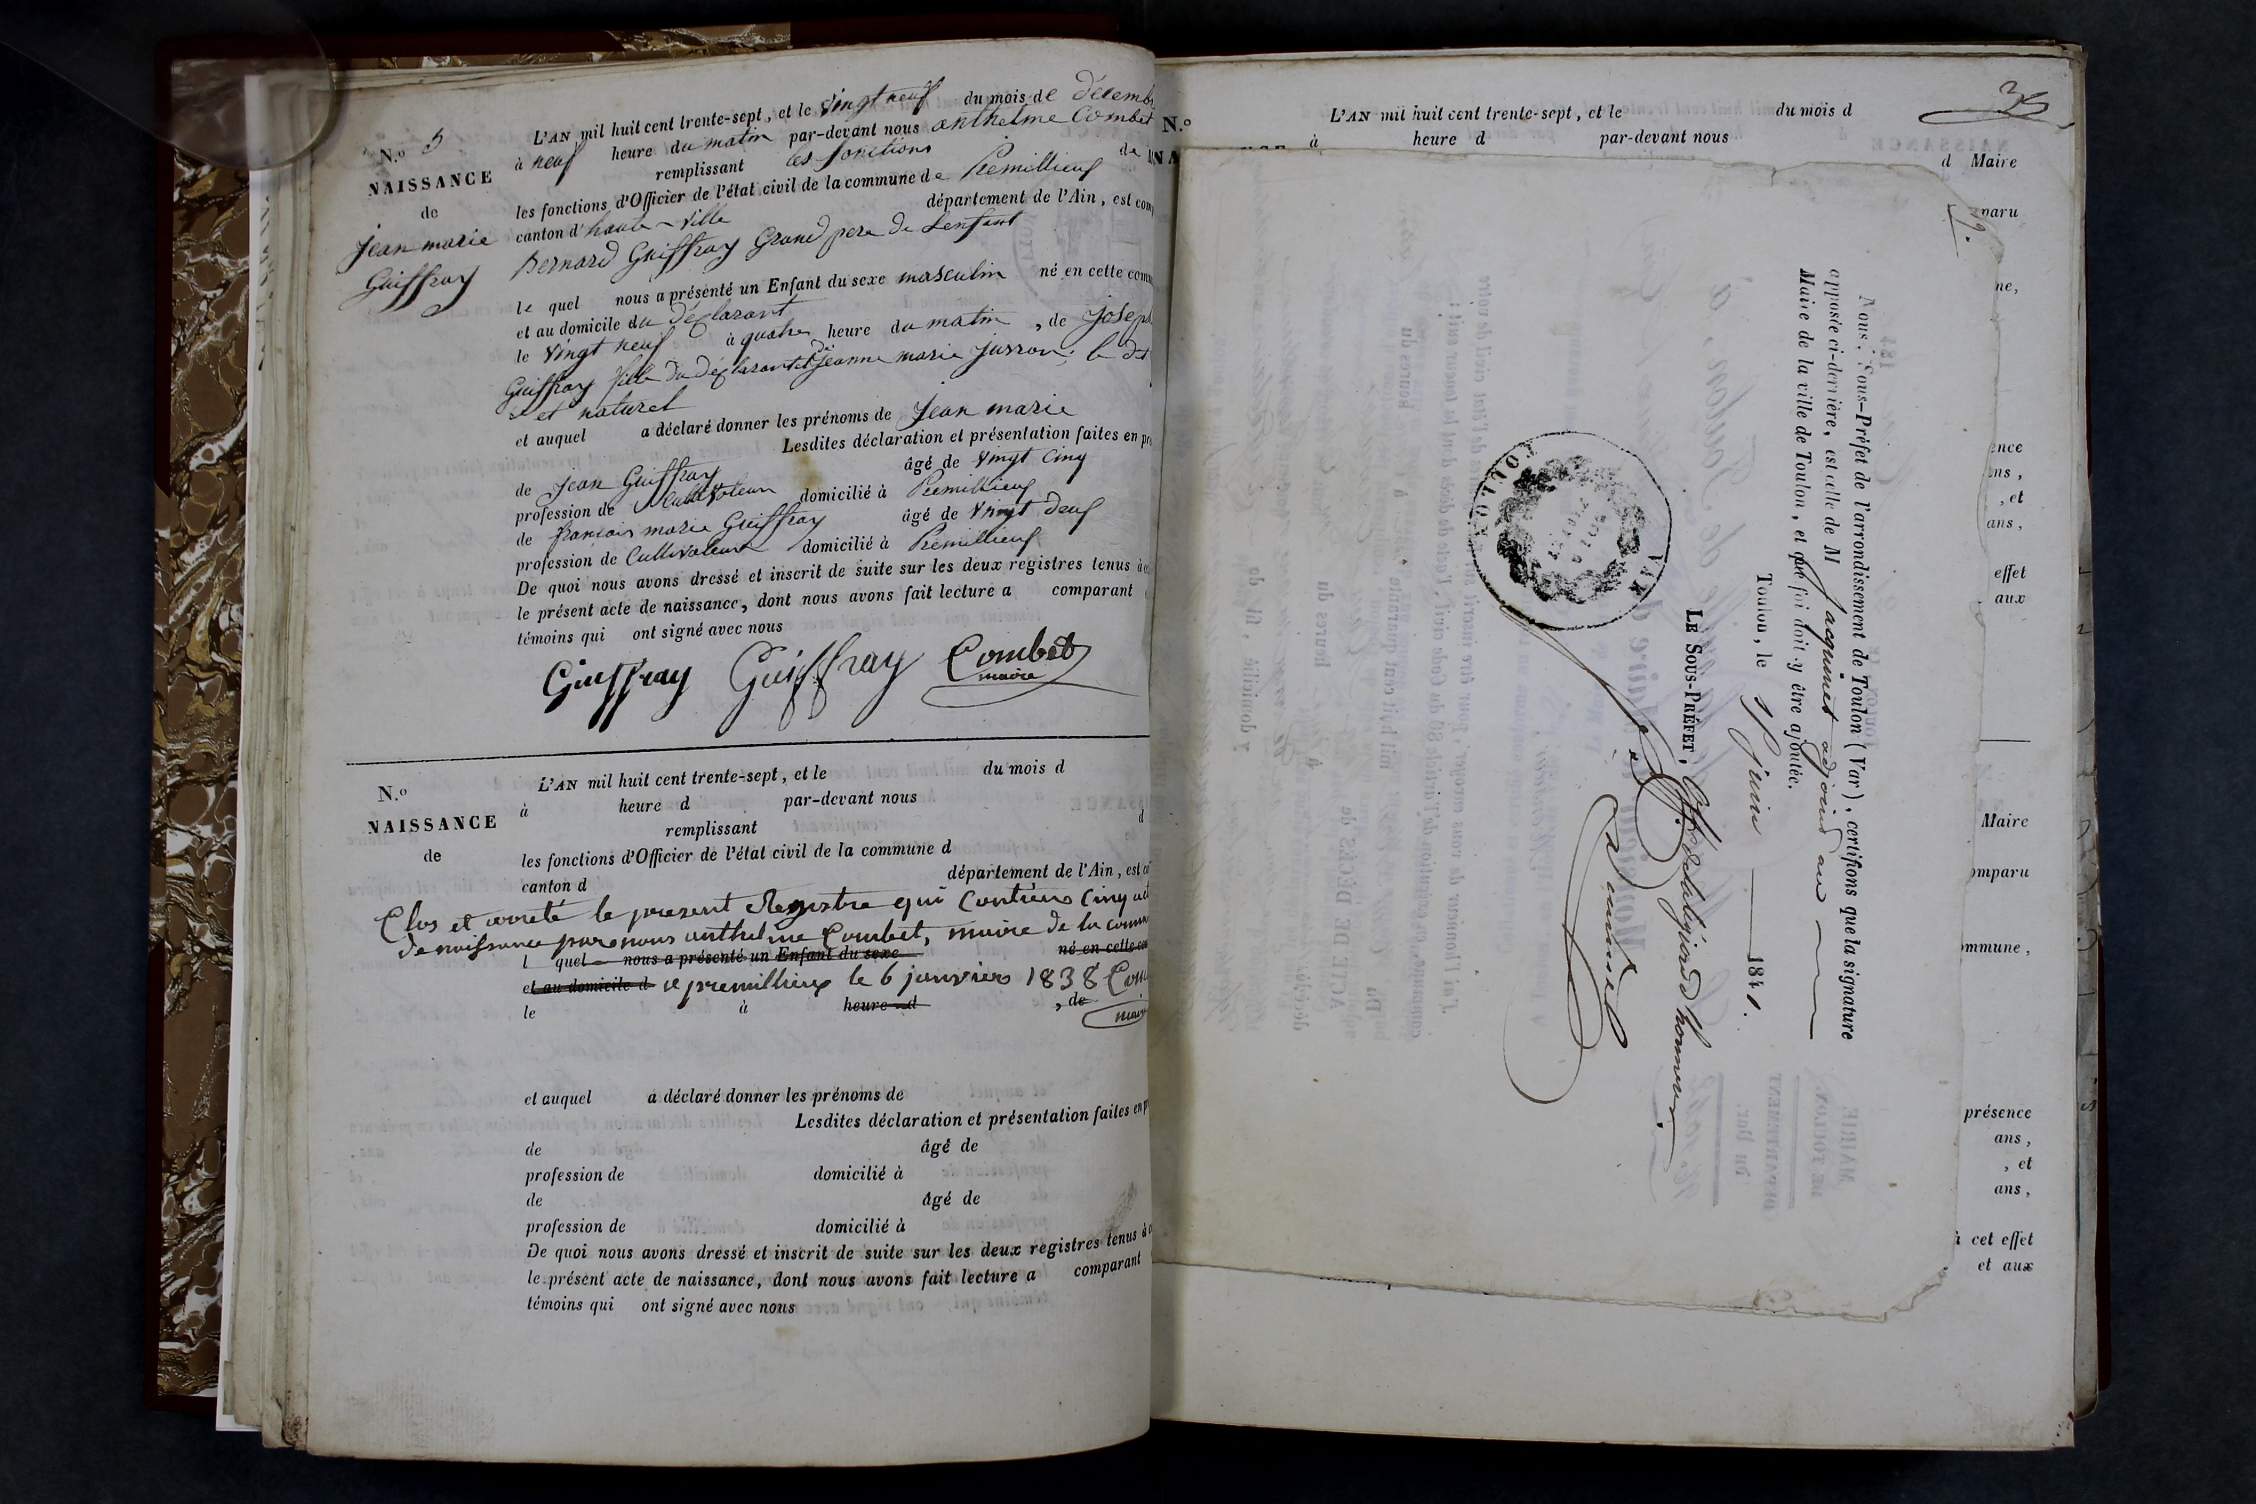 N.o 5
NAISSANCE
de
jean marie
Guiffray
L'AN mil huit cent trente-sept, et le vingt neuf du mois de décemb
à neuf heure du matin par-devant nous anthelme Combet
remplissant les fonctions de
les fonctions d'Officier de l'état civil de la commune de Premillieux
canton d'haute-ville département de l'Ain, est com
Bernard Guiffray Grand pere de Lenfant
le quel nous a présenté un Enfant du sexe masculin né en cette comm
et au domicile du déclarant
le vingt neuf à quatre heure du matin, de joseph
Guiffray fils du déclarant et de jeanne marie juron
et naturel
et auquel a déclaré donner les prénoms de jean marie
Lesdites déclaration et présentation faites en pr
de jean Guiffray âgé de vingt cinq
profession de Cultivateur domicilié à Premillieux
de françois marie Guiffray âgé de vingt deux
profession de Cultivateur domicilié à Premillieux
De quoi nous avons dressé et inscrit de suite sur les deux registres tenus à c
le présent acte de naissance, dont nous avons fait lecture a comparant
témoins qui ont signé avec nous
Guiffray Guiffray Combet
maire
N.o
NAISSANCE
de
L'AN mil huit cent trente-sept, et le du mois d
à heure d par-devant nous
remplissant d
les fonctions d'Officier de l'état civil de la commune d
canton d département de l'Ain, est co
Clos et arreté le present Registre qui Contiens Cinq act
de naissance par nous anthelme Combet, maire de la commu
l quel nous a présenté un Enfant du sexe né en cette com
et au domicile d premillieux le 6 janvier 1838 Com
le à heure d , de
maire
et auquel a déclaré donner les prénoms de
Lesdites déclaration et présentation faites en pr
de âgé de
profession de domicilié à
de âgé de
profession de domicilié à
De quoi nous avons dressé et inscrit de suite sur les deux registres tenus à c
le présent acte de naissance, dont nous avons fait lecture a comparant
témoins qui ont signé avec nous
35
N.o
NA
L'AN mil huit cent trente-sept, et le du mois d
à heure d par-devant nous
d Maire
paru
ne,
ence
ns,
, et
ans,
effet
aux
Maire
omparu
ommune,
présence
ans,
, et
ans,
à cet effet
et aux
Nous, Sous-Préfet de l'arrondissement de Toulon (Var), certifions que la signature
apposée ci-derrière, est celle de M Jacquinet adjoint au
Maire de la ville de Toulon, et que foi doit y être ajoutée.
Toulon, le 9 juin 1841.
LE SOUS-PRÉFET, Off. de la légion d'honneur.
TOULON
VAR